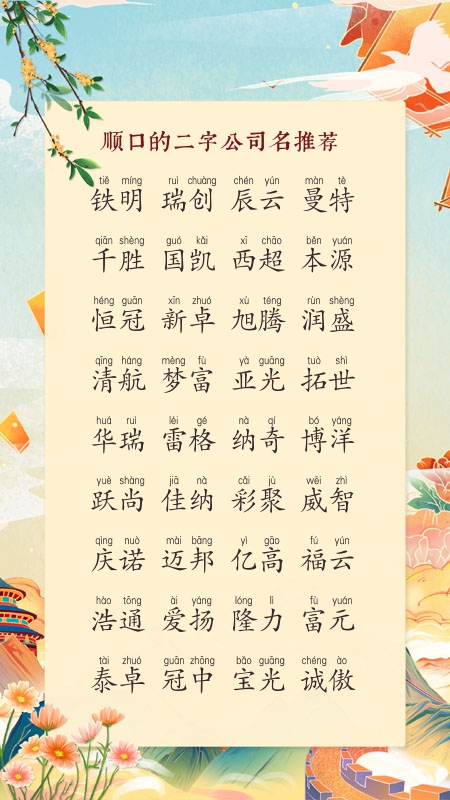 顺口的二字公司名推荐
tiě míng ruì chuàng chén yún màn tè
铁明 瑞创 辰云 曼特
qiān shèng guó kǎi xī chāo běn yuán
千胜 国凯 西超 本源
héng guān xīn zhuó xù téng rùn shèng
恒冠 新卓 旭腾 润盛
qīng háng mèng fù yà guāng tuò shì
清航 梦富 亚光 拓世
huá ruì léi gé nà qí bó yáng
华瑞 雷格 纳奇 博洋
yuè shàng jiā nà cǎi jù wēi zhì
跃尚 佳纳 彩聚 威智
qìng nuò mài bāng yì gāo fú yún
庆诺 迈邦 亿高 福云
hào tōng ài yáng lóng lì fù yuán
浩通 爱扬 隆力 富元
tài zhuó guān zhōng bǎo guāng chéng ào
泰卓 冠中 宝光 诚傲